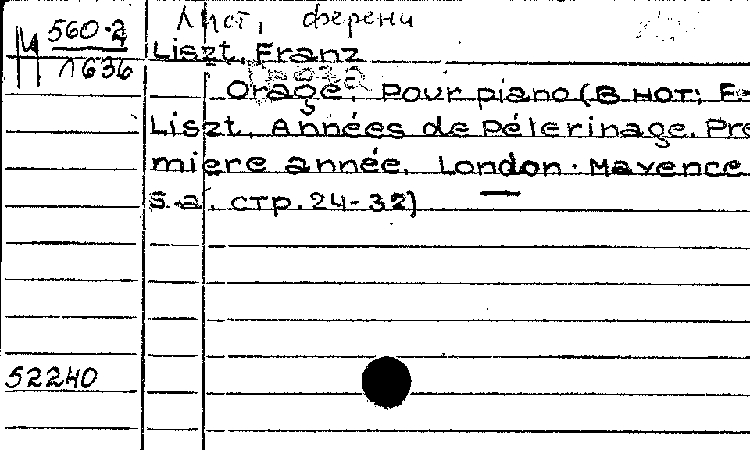 Лист, Ференц
М 560-2
Л636
Liszt, Franz
Orage. Pour piano (В нот: F.
Liszt. Années de Pélerinage. Pre
miere année. London. Mayence
s.a. стр. 24-32)
52240